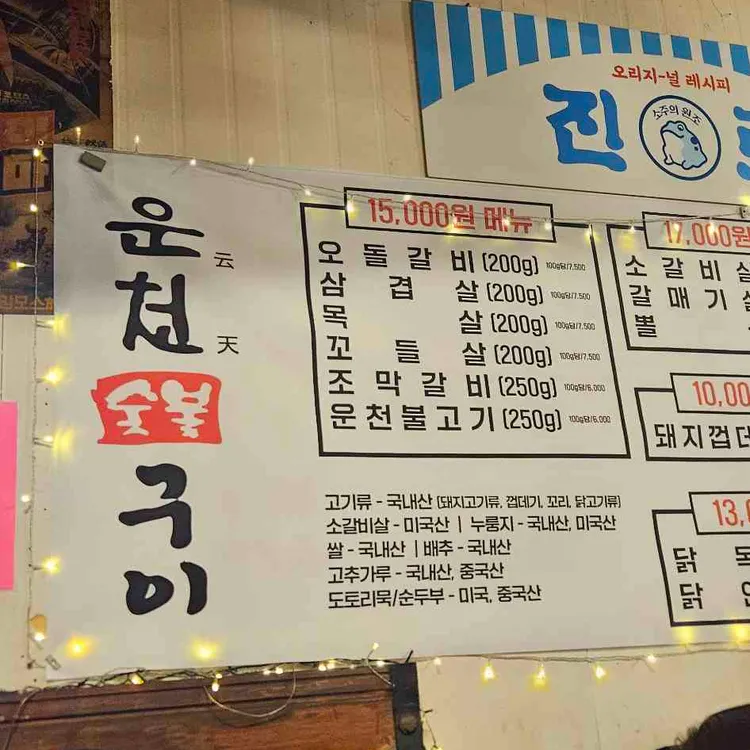 오리지-널 레시피
진
소주의 원조
운천
云
天
숯불
구이
15,000원 메뉴
오돌갈비 (200g) 100g당/7,500
삼겹살 (200g) 100g당/7,500
목살 (200g) 100g당/7,500
꼬들살 (200g) 100g당/7,500
조막갈비 (250g) 100g당/6,000
운천불고기 (250g) 100g당/6,000
고기류 - 국내산 (돼지고기류, 껍데기, 꼬리, 닭고기류)
소갈비살 - 미국산 | 누룽지 - 국내산, 미국산
쌀 - 국내산 | 배추 - 국내산
고추가루 - 국내산, 중국산
도토리묵/순두부 - 미국, 중국산
17,000원
소갈비살
갈매기살
뽈
10,00
돼지껍데
13,
닭
닭